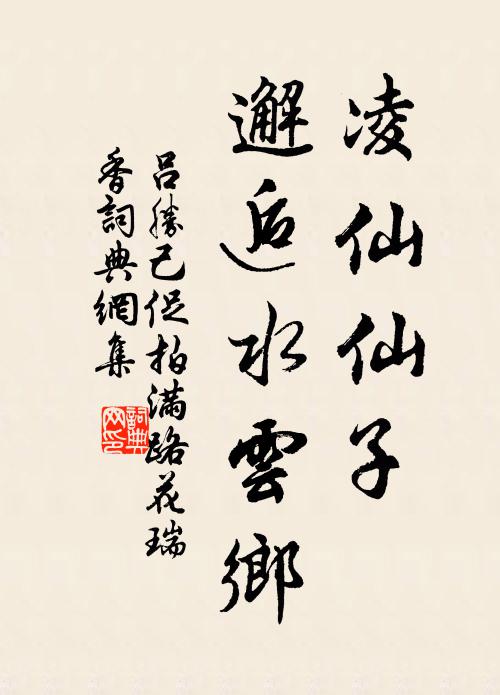 凌仙仙子
邂逅水雲鄉
呂勝己促拍滿路花瑞
香詞典網集
詞典
网印